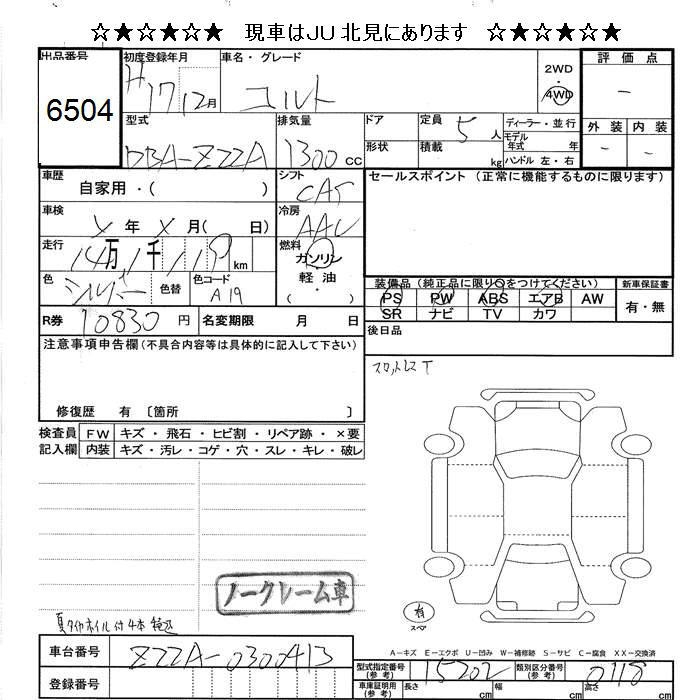 ☆★☆★☆★ 現車はJU北見にあります ☆★☆★☆★
出品番号 初度登録年月 車名・グレード 評価点
6504 H17 12月 コルト 2WD ・ 4WD －
型式 排気量 ドア 定員 5人 ディーラー・並行 外装 内装
DBA-Z22A 1300cc 形状 積載 kg モデル年式 年 － －
ハンドル 左・右
車歴 シフト セールスポイント (正常に機能するものに限ります)
自家用・( ) CAT
車検 冷房
年 月( 日) AAC
走行 燃料
14万1千119km ガソリン
色 色替 色コード 軽油
シルバー A19 ・ ( )
装備品(純正品に限り○をつけてください) 新車保証書
PS PW ABS エアB AW 有・無
SR ナビ TV カワ
R券 10830円 名変期限 月 日 後日品
注意事項申告欄(不具合内容等は具体的に記入して下さい)
修復歴 有 〔箇所 〕
検査員 FW キズ・飛石・ヒビ割・リペア跡・×要
記入欄 内装 キズ・汚レ・コゲ・穴・スレ・キレ・破レ
ノークレーム車
有
スペア
夏タイヤホイル付4本
A－キズ E－エクボ U－凹み W－補修跡 S－サビ C－腐食 XX－交換済
車台番号 Z22A-0300413 型式指定番号(参考) 15202 類別区分番号(参考) 0118
登録番号 車庫証明用(参考) 長さ cm 幅 cm 高さ cm